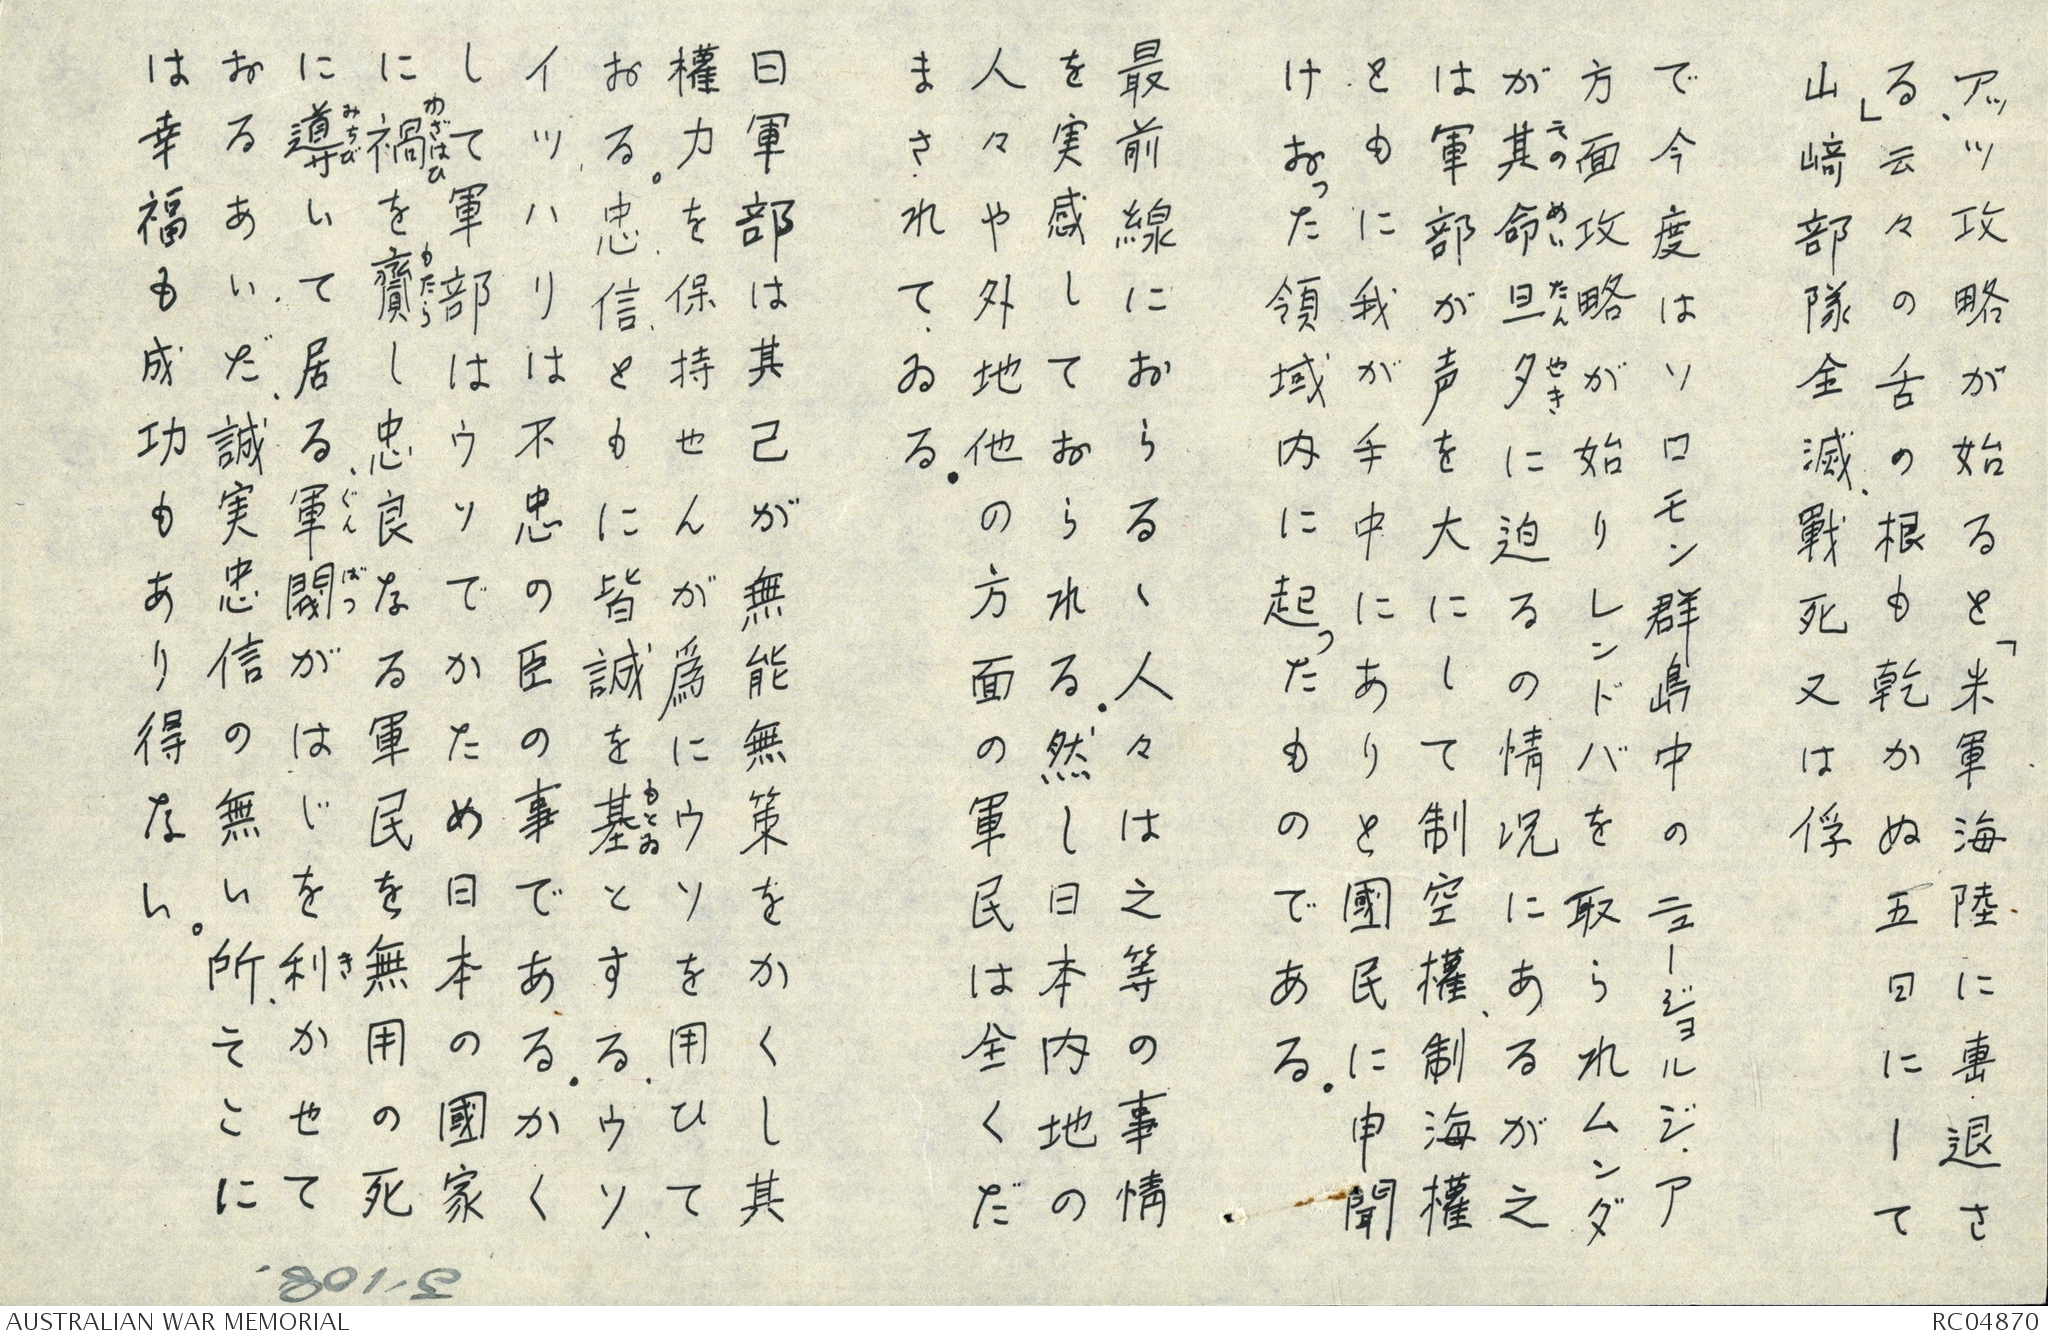 アッツ攻略が始ると「米軍海陸に撃退さ
る」云々の舌の根も乾かぬ五日にして
山﨑部隊全滅、戰死又は俘
で今度はソロモン群島中のニュージョルジ、ア
方面攻略が始りレンドバを取られムンダ
が其命旦夕に迫るの情況にあるが之
その めい たん やき
は軍部が声を大にして制空權、制海權
ともに我が手中にありと國民に申聞
けおった領域内に起ったものである。
最前線におらるゝ人々は之等の事情
を実感しておられる。然し日本内地の
人々や外地他の方面の軍民は全くだ
まされて、ゐる。
日軍部は其己が無能無策をかくし其
權力を保持せんが爲にウソを用ひて
おる。忠、信、ともに皆誠を基とする、ウソ、
もとゐ
イツハリは不忠の臣の事である。かく
して軍部はウソでかため日本の國家
に禍を齎し忠良なる軍民を無用の死
わざはひ もたら
に導いて居る、軍閥がはじを利かせて
みちび ぐん ばつ き
おるあいだ、誠実忠信の無い所、そこに
は幸福も成功もあり得ない。
3-108
AUSTRALIAN WAR MEMORIAL
RC04870